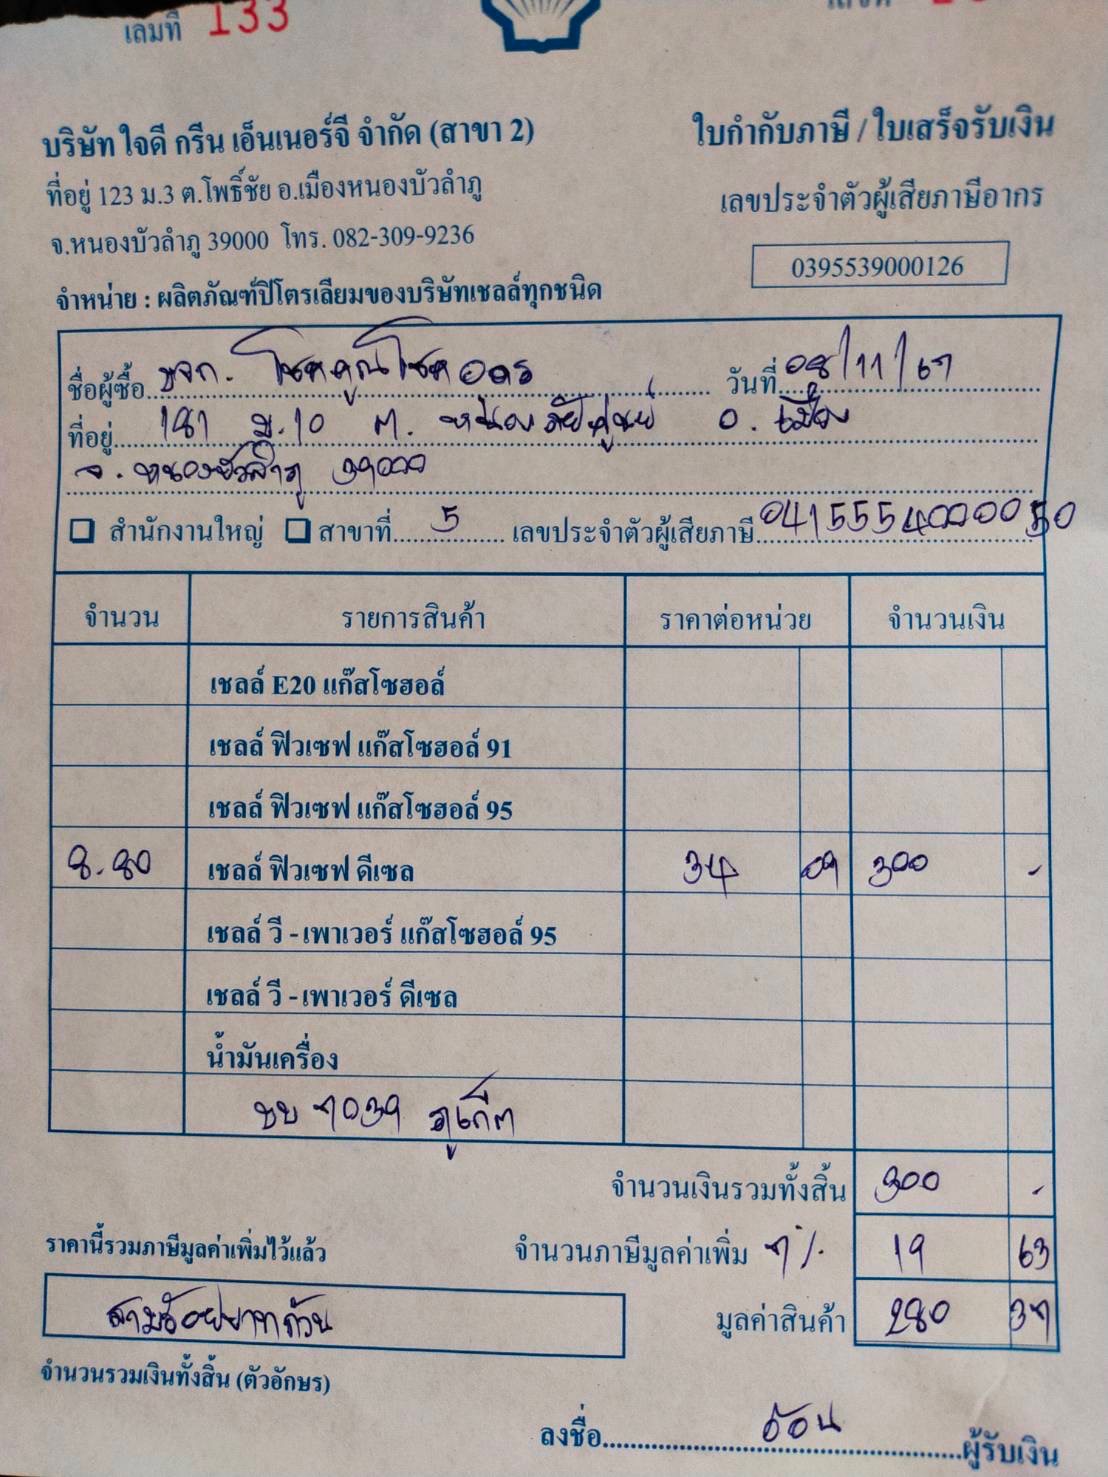 เล่มที่ 133
บริษัท ใจดี กรีน เอ็นเนอร์จี จำกัด (สาขา 2)
ใบกำกับภาษี / ใบเสร็จรับเงิน
ที่อยู่ 123 ม.3 ต.โพธิ์ชัย อ.เมืองหนองบัวลำภู
เลขประจำตัวผู้เสียภาษีอากร
จ.หนองบัวลำภู 39000 โทร. 082-309-9236
0395539000126
จำหน่าย : ผลิตภัณฑ์ปิโตรเลียมของบริษัทเชลล์ทุกชนิด
ชื่อผู้ซื้อ หจก. โชคคูณโชค วันที่ 08/11/67
ที่อยู่ 181 ม.10 ต. อ. เมือง
จ. หนองบัวลำภู 39000
สำนักงานใหญ่ สาขาที่ 5 เลขประจำตัวผู้เสียภาษี 0415554000050
จำนวน รายการสินค้า ราคาต่อหน่วย จำนวนเงิน
เชลล์ E20 แก๊สโซฮอล์
เชลล์ ฟิวเซฟ แก๊สโซฮอล์ 91
เชลล์ ฟิวเซฟ แก๊สโซฮอล์ 95
8.80 เชลล์ ฟิวเซฟ ดีเซล 34 09 300 -
เชลล์ วี - เพาเวอร์ แก๊สโซฮอล์ 95
เชลล์ วี - เพาเวอร์ ดีเซล
น้ำมันเครื่อง
7039 ภูเก็ต
จำนวนเงินรวมทั้งสิ้น 300 -
ราคานี้รวมภาษีมูลค่าเพิ่มไว้แล้ว จำนวนภาษีมูลค่าเพิ่ม 7% 19 63
สามร้อยบาทถ้วน มูลค่าสินค้า 280 37
จำนวนรวมเงินทั้งสิ้น (ตัวอักษร)
ลงชื่อ ผู้รับเงิน